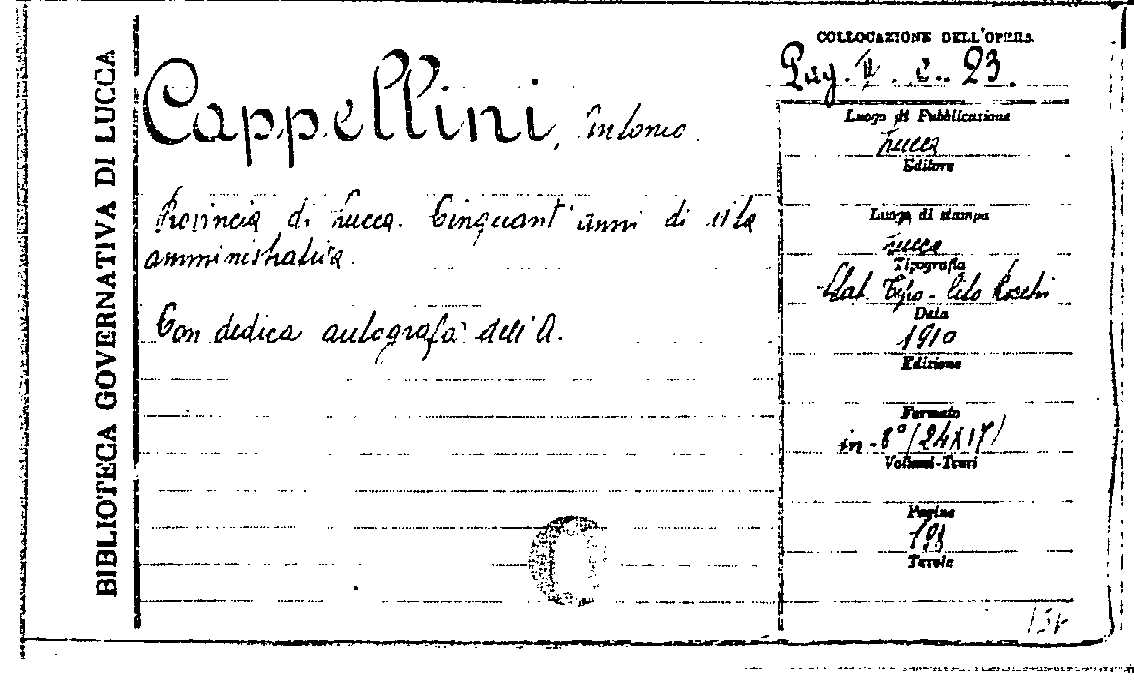 BIBLIOTECA GOVERNATIVA DI LUCCA
Cappellini, Antonio.
Provincia di Lucca. Cinquant'anni di vita
amministrativa.
Con dedica autografa dell'A.
COLLOCAZIONE DELL'OPERA
Pag. V. c.. 23.
Luogo di Pubblicazione
Lucca
Editore
Luogo di stampa
Lucca
Tipografia
Stab. Tipo-Lito Rocchi
Data
1910
Edizione
Formato
in-8° (24X17)
Volumi-Tomi
Pagine
Tavole